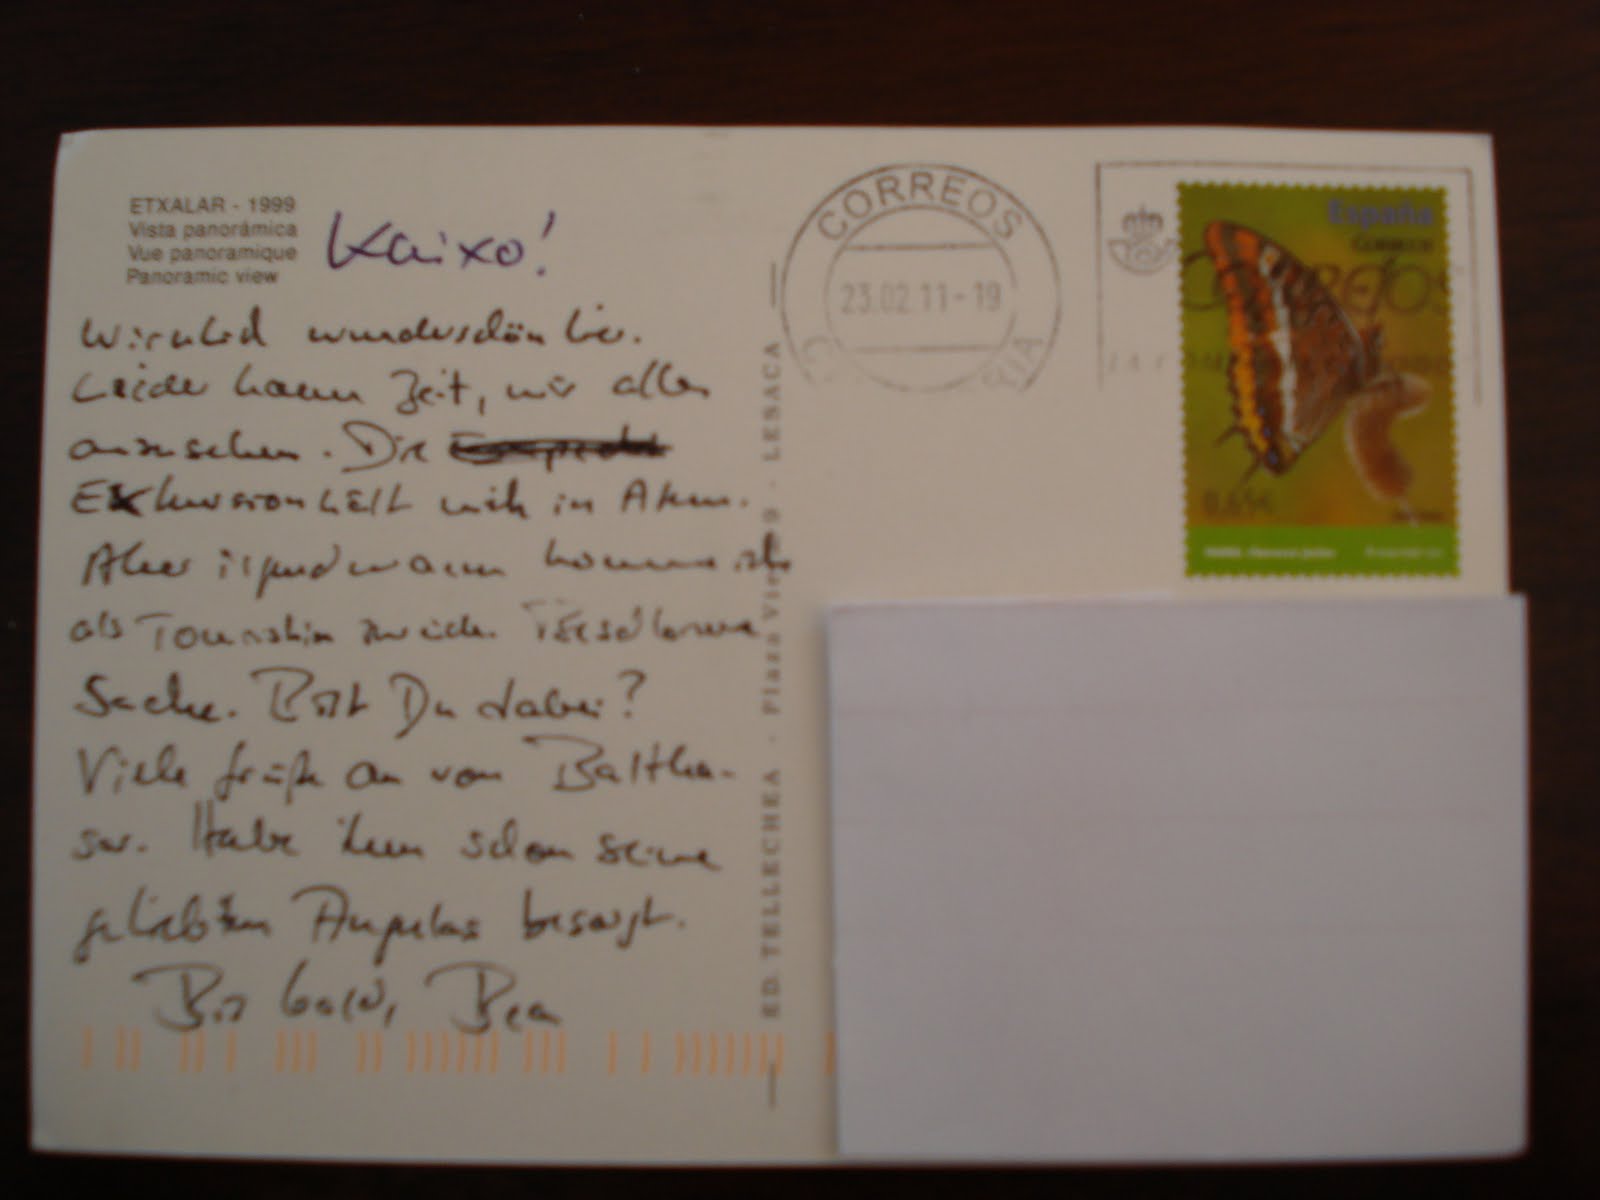 ETXALAR - 1999
Vista panorámica
Vue panoramique
Panoramic view
Kaixo!
Wirklich wunderschön hier.
Leider kaum Zeit, mir alles
anzusehen. Die
Exkursion hält mich in Atem.
Aber irgendwann komme ich
als Touristin zurück.
Sache. Bist Du dabei?
Viele Grüße an von Baltha-
sar. Habe ihm schon seine
geliebten Angulas besorgt.
Bis bald, Bea
ED. TELLECHEA - Plaza - LESACA
CORREOS
23.02 11-19
España
CORREOS
CORREOS
0,65€